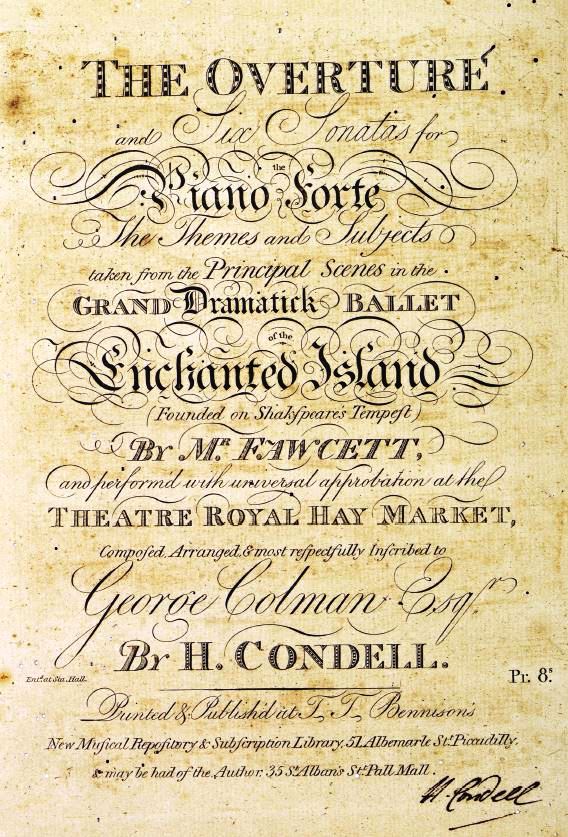 THE OVERTURE
and Six Sonatas for
the
Piano Forte
The Themes and Subjects
taken from the Principal Scenes in the
GRAND Dramatick BALLET
of the
Enchanted Island
(Founded on Shakſpeare's Tempeſt)
By Mr. FAWCETT,
and perform'd with universal approbation at the
THEATRE ROYAL HAY MARKET,
Composed, Arranged, & most reſpectfully Inſcribed to
George Colman Esqr.
By H. CONDELL.
Ent.d at Sta. Hall. Pr. 8s.
Printed & Publish'd at T. T. Bennison's
New Musical Repository & Subſcription Library, 51, Albemarle St. Piccadilly.
& may be had of the Author, 35 St. Alban's St. Pall Mall.
H. Condell